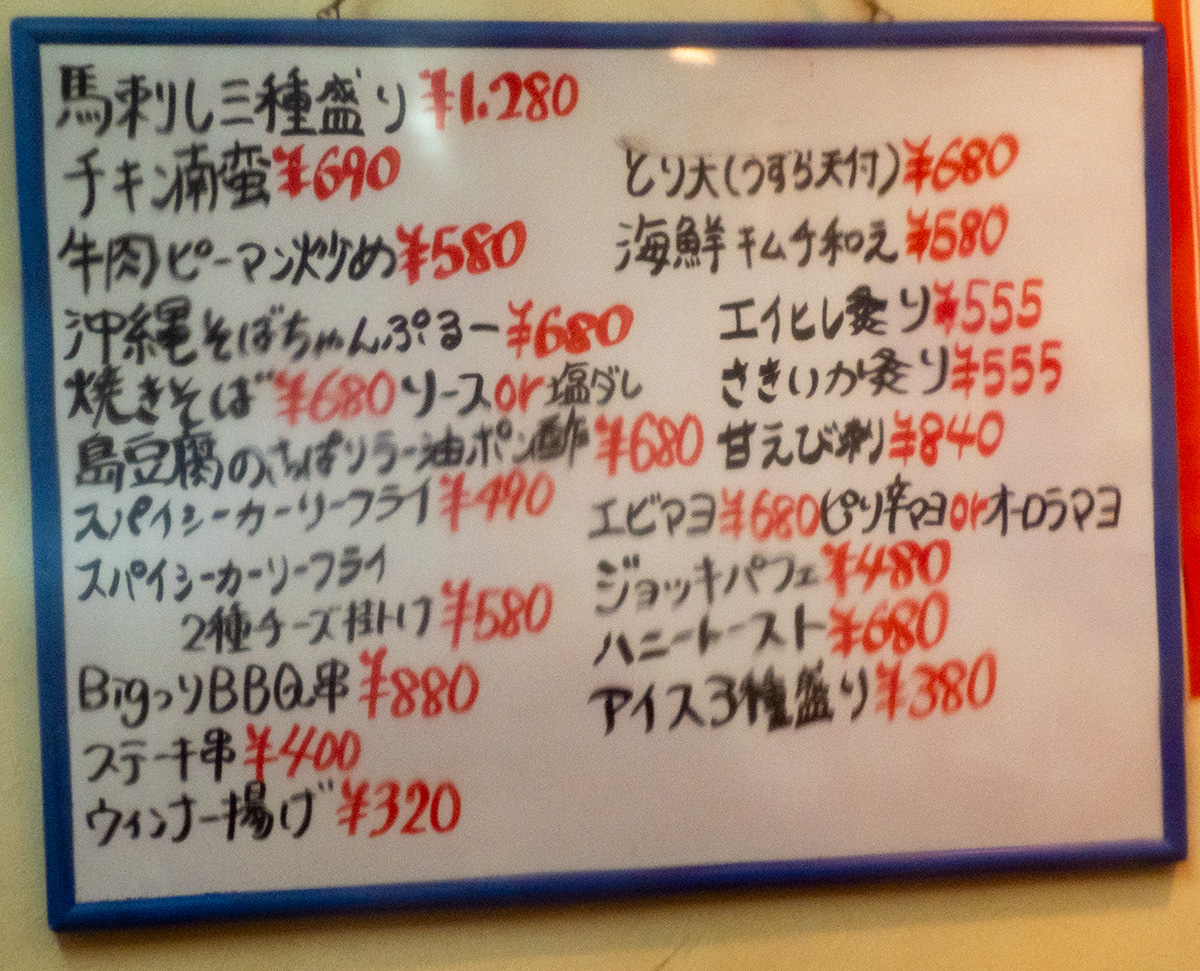 馬刺し三種盛り ¥1.280
チキン南蛮 ¥690
牛肉ピーマン炒め ¥580
沖縄そばちゃんぷるー ¥680
焼きそば ¥680 ソース or 塩ダレ
島豆腐のさっぱりラー油ポン酢 ¥680
スパイシーカーリーフライ ¥490
スパイシーカーリーフライ
2種チーズ掛け ¥580
BigっりBBQ串 ¥880
ステーキ串 ¥400
ウィンナー揚げ ¥320
とり天(うずら天付) ¥680
海鮮キムチ和え ¥580
エイヒレ炙り ¥555
さきいか炙り ¥555
甘えび刺り ¥840
エビマヨ ¥680 ピリ辛マヨ or オーロラマヨ
ジョッキパフェ ¥480
ハニートースト ¥680
アイス3種盛り ¥380